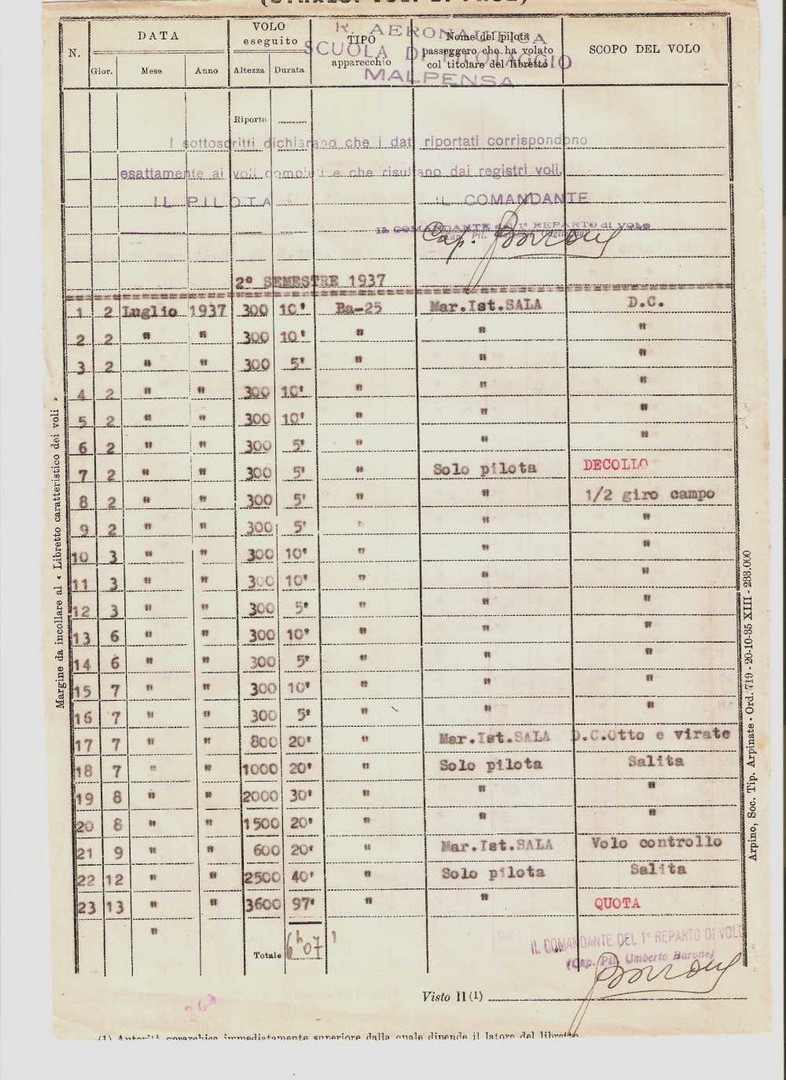 N.
DATA
VOLO
eseguito
TIPO
apparecchio
Nome del pilota
passeggero che ha volato
col titolare del libretto
SCOPO DEL VOLO
Gior.
Mese
Anno
Altezza
Durata
R. AERONAUTICA
SCUOLA DI PILOTAGGIO
MALPENSA
Riporto
I sottoscritti dichiarano che i dati riportati corrispondono
esattamente ai voli compiuti e che risultano dai registri voli.
IL PILOTA IL COMANDANTE
IL COMANDANTE DEL 1° REPARTO di VOLO
Cap.
2° SEMESTRE 1937
1 2 Luglio 1937 300 10' Ba-25 Mar.Ist.SALA D.C.
2 2 " " 300 10' " " "
3 2 " " 300 5' " " "
4 2 " " 300 10' " " "
5 2 " " 300 10' " " "
6 2 " " 300 5' " " "
7 2 " " 300 5' " Solo pilota DECOLLO
8 2 " " 300 5' " " 1/2 giro campo
9 2 " " 300 5' " " "
10 3 " " 300 10' " " "
11 3 " " 300 10' " " "
12 3 " " 300 5' " " "
13 6 " " 300 10' " " "
14 6 " " 300 5' " " "
15 7 " " 300 10' " " "
16 7 " " 300 5' " " "
17 7 " " 800 20' " Mar.Ist.SALA D.C.Otto e virate
18 7 " " 1000 20' " Solo pilota Salita
19 8 " " 2000 30' " " "
20 8 " " 1500 20' " " "
21 9 " " 600 20' " Mar.Ist.SALA Volo controllo
22 12 " " 2500 40' " Solo pilota Salita
23 13 " " 3600 97' " " QUOTA
"
Totale 6h07'
IL COMANDANTE DEL 1° REPARTO DI VOLO
(Cap. Pil. Umberto Barone)
Visto Il (1)
(1) Autorità gerarchica immediatamente superiore dalla quale dipende il latore del libretto
Margine da incollare al « Libretto caratteristico dei voli »
Arpino, Soc. Tip. Arpinate - Ord. 719 - 20-10-35 XIII - 293.000